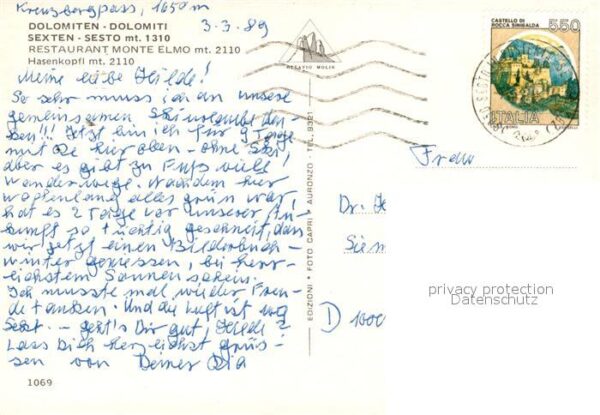 Kreuzbergpass, 1650 m
3.3.89
DOLOMITEN - DOLOMITI
SEXTEN - SESTO mt. 1310
RESTAURANT MONTE ELMO mt. 2110
Hasenköpfl mt. 2110
OTTAVIO MOLIN
Meine liebe Hilde!
So sehr muss ich an unsere
gemeinsamen Skiurlaube den-
ken!!! Jetzt bin ich für 9 Tage
mit hier oben - ohne Ski,
aber es gibt zu Fuß viele
Wanderwege. Nachdem hier
wochenlang alles grün war,
hat es 2 Tage vor unserer An-
kunft so tüchtig geschneit, dass
wir jetzt einen Bilderbuch-
winter geniessen, bei herr-
lichstem Sonnenschein.
Ich musste mal wieder Freu-
de tanken. Und die Luft ist
- geht's Dir gut, Hilde?
Lass Dich herzlichst grüs-
sen von Deiner
1069
EDIZIONI • FOTO CAPRI • AURONZO - TEL. 9321
CASTELLO DI
ROCCA SINIBALDA
550
ITALIA
Frau
Dr.
D 1000
privacy protection
Datenschutz